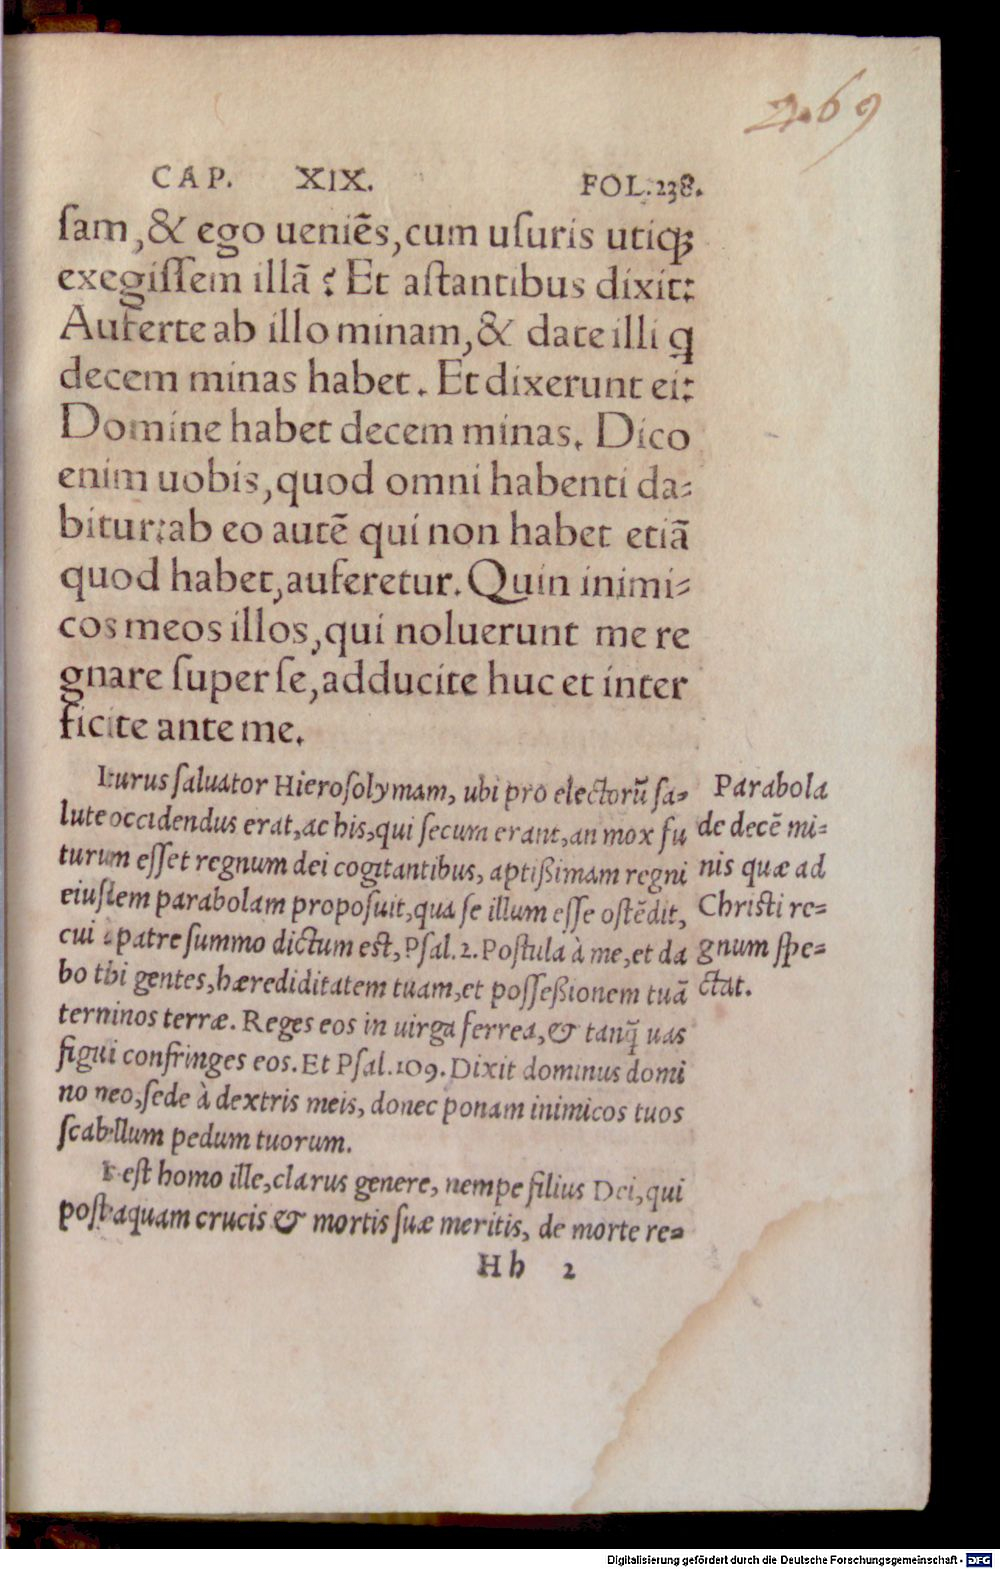 269
CAP. XIX. FOL.238.
ſam,& ego ueniẽs,cum uſuris utiqꝫ
exegiſſem illã? Et aſtantibus dixit:
Auferte ab illo minam,& date illi ꝗ
decem minas habet. Et dixerunt ei:
Domine habet decem minas. Dico
enim uobis,quod omni habenti da-
bitur:ab eo autẽ qui non habet etiã
quod habet,auferetur. Quin inimi-
cos meos illos,qui noluerunt me re
gnare super ſe,adducite huc et inter
ficite ante me.
Iturus ſaluator Hieroſolymam, ubi pro electorũ ſa-
lute occidendus erat, ac his,qui ſecum erant,an mox fu
turum eſſet regnum dei cogitantibus, aptißimam regni
eiuſdem parabolam propoſuit,qua ſe illum eſſe oſtẽdit,
cui à patre ſummo dictum eſt, Pſal.2. Poſtula à me,et da
bo tibi gentes,hærediditatem tuam,et poſſeßionem tuã
terminos terræ. Reges eos in uirga ferrea,& tanq̃ uas
figuli confringes eos. Et Pſal.109. Dixit dominus domi
no meo,ſede à dextris meis, donec ponam inimicos tuos
ſcabellum pedum tuorum.
Is eſt homo ille,clarus genere, nempe filius Dei,qui
poſteaquam crucis & mortis ſuæ meritis, de morte re-
Hh 2
Parabola
de decẽ mi-
nis quæ ad
Chriſti re-
gnum ſpe-
ctat.
Digitalisierung gefördert durch die Deutsche Forschungsgemeinschaft - DFG